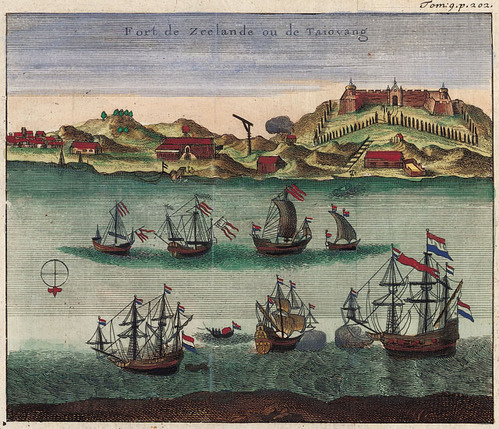 Tom: 9. p. 202.
Fort de Zeelande ou de Taiovang